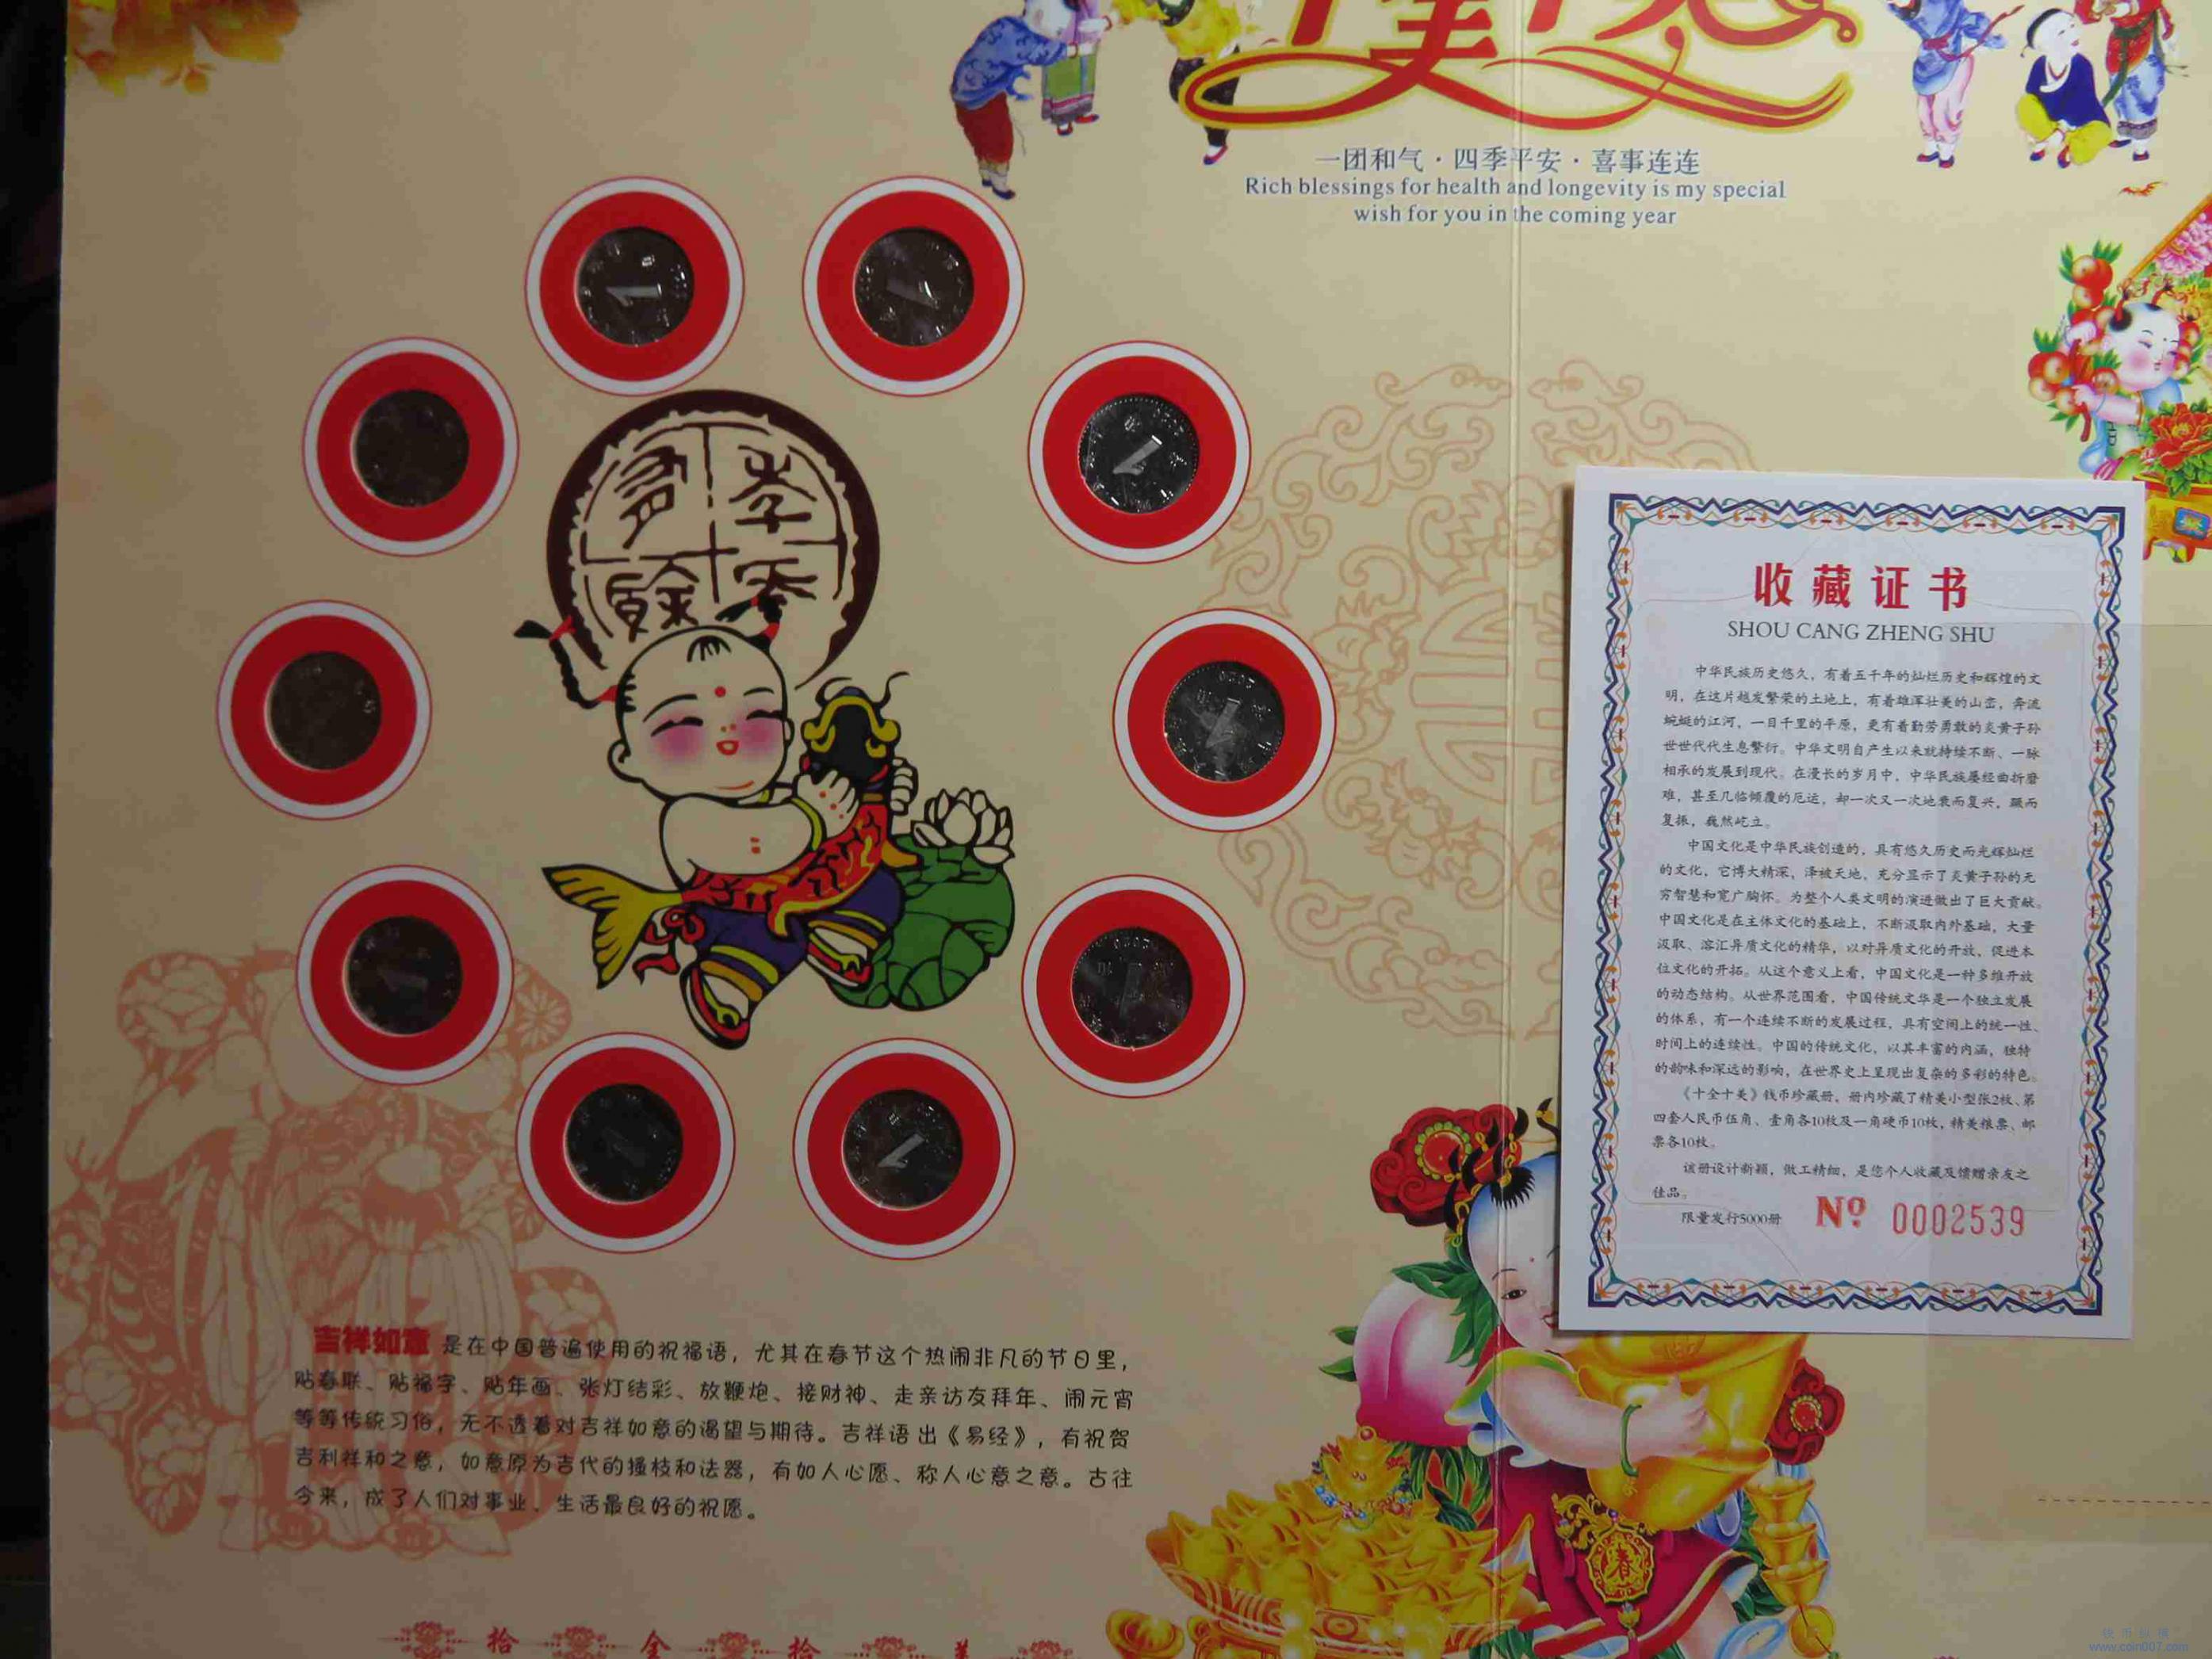 一团和气·四季平安·喜事连连
Rich blessings for health and longevity is my special
wish for you in the coming year
收藏证书
SHOU CANG ZHENG SHU
中华民族历史悠久，有着五千年的灿烂历史和辉煌的文
明，在这片越发繁荣的土地上，有着雄浑壮美的山峦，奔流
蜿蜒的江河，一目千里的平原，更有着勤劳勇敢的炎黄子孙
世世代代生息繁衍。中华文明自产生以来就持续不断、一脉
相承的发展到现代。在漫长的岁月中，中华民族屡经曲折磨
难，甚至几临倾覆的厄运，却一次又一次地衰而复兴，蹶而
复振，巍然屹立。
中国文化是中华民族创造的，具有悠久历史而光辉灿烂
的文化，它博大精深，泽被天地，充分显示了炎黄子孙的无
穷智慧和宽广胸怀。为整个人类文明的演进做出了巨大贡献。
中国文化是在主体文化的基础上，不断汲取内外基础，大量
汲取、溶汇异质文化的精华，以对异质文化的开放，促进本
位文化的开拓。从这个意义上看，中国文化是一种多维开放
的动态结构。从世界范围看，中国传统文华是一个独立发展
的体系，有一个连续不断的发展过程，具有空间上的统一性、
时间上的连续性。中国的传统文化，以其丰富的内涵，独特
的韵味和深远的影响，在世界史上呈现出复杂的多彩的特色。
《十全十美》钱币珍藏册，册内珍藏了精美小型张2枚、第
四套人民币伍角、壹角各10枚及一角硬币10枚，精美粮票、邮
票各10枚。
该册设计新颖，做工精细，是您个人收藏及馈赠亲友之
佳品。
限量发行5000册 Nº 0002539
吉祥如意 是在中国普遍使用的祝福语，尤其在春节这个热闹非凡的节日里，
贴春联、贴福字、贴年画、张灯结彩、放鞭炮、接财神、走亲访友拜年、闹元宵
等等传统习俗，无不透着对吉祥如意的渴望与期待。吉祥语出《易经》，有祝贺
吉利祥和之意，如意原为古代的搔杖和法器，有如人心愿、称人心意之意。古往
今来，成了人们对事业、生活最良好的祝愿。
春
拾 全 拾 美
www.coin007.com